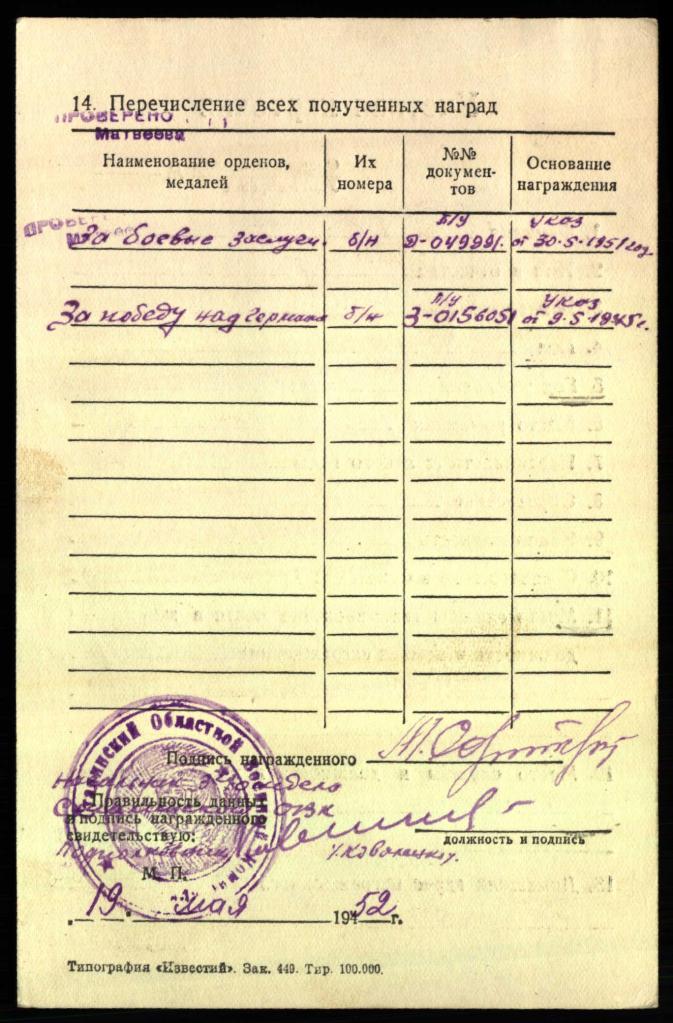 14. Перечисление всех полученных наград
ПРОВЕРЕНО
Матвеева
Наименование орденов, медалей
Их номера
№№ документов
Основание награждения
ПРОВЕР
За боевые заслуги б/н П/У Д-049991. Указ от 30-5-1951 год.
За победу над Германи б/н П/У З-0156051 Указ от 9-5-1945г.
Подпись награжденного
Областной
Правильность данных
и подпись награжденного
свидетельствую:
Подполковник
должность и подпись
М. П.
19 мая 1952 г.
Типография «Известий». Зак. 449. Тир. 100.000.